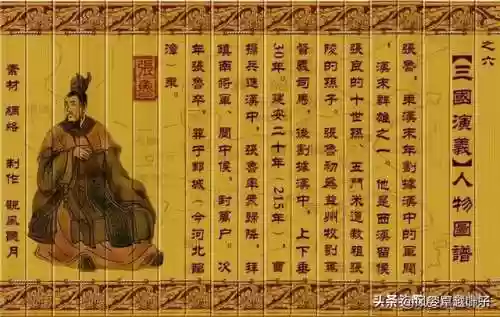 之六
【三國演義】人物圖譜
張魯，東漢末年割據漢中的軍閥
、漢末群雄之一。他是西漢留侯
張良的十世孫、五鬥米道教祖張
陵的孫子。張魯初爲益州牧劉焉
督義司馬，後割據漢中，上下垂
30年。建安二十年（215年），曹
操兵進漢中，張魯率眾歸降。拜
鎮南將軍、閬中侯，封萬戶。次
年張魯卒。葬于鄴城（今河北臨
漳）東。
張魯
素材 網絡 制作 觀風聽月
头条